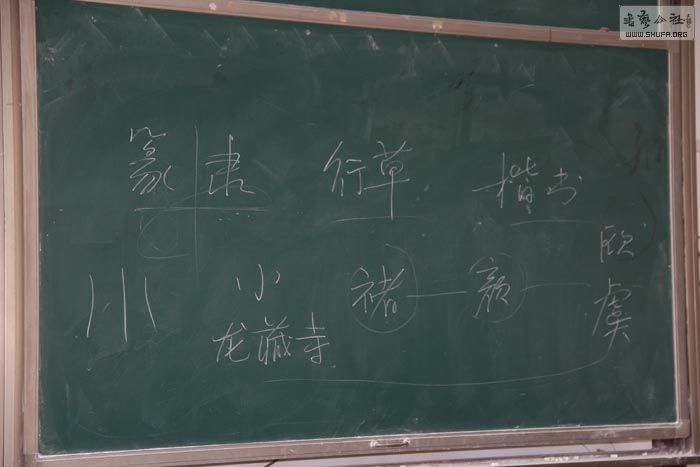 書藝公社
WWW.SHUFA.ORG
篆 隶 行草 楷书
小 小 褚 — 颜 — 欧
虞
龙藏寺